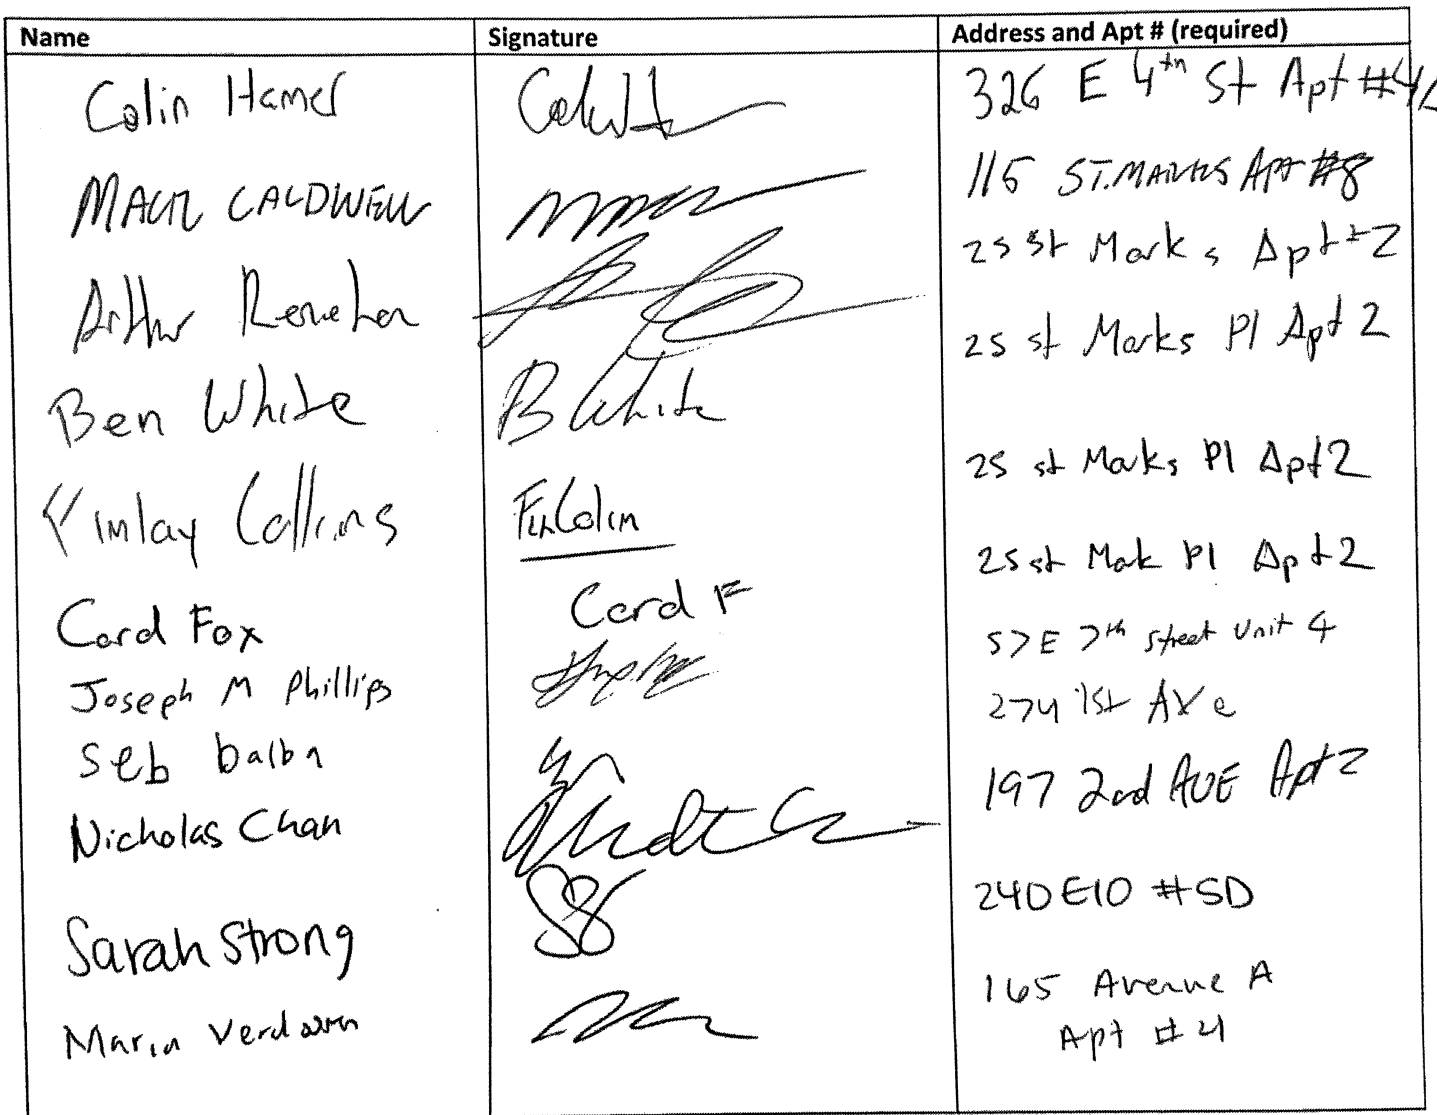 Name Signature Address and Apt # (required)
Colin Hamer 326 E 4th St Apt #4
CALDWELL 115 ST. MARKS APT #8
Arthur Renehan 25 St Marks Apt #2
Ben White B White 25 st Marks Pl Apt 2
Finlay Collins Fin Colin 25 st Marks Pl Apt 2
Card Fox Card F 25 st Mark Pl Apt 2
Joseph M Phillips 57 E 7th street Unit 4
Seb balba 274 1st Ave
Nicholas Chan 197 2nd AVE Apt 2
Sarah Strong SS 240 E10 #5D
Maria 165 Avenue A
Apt #4